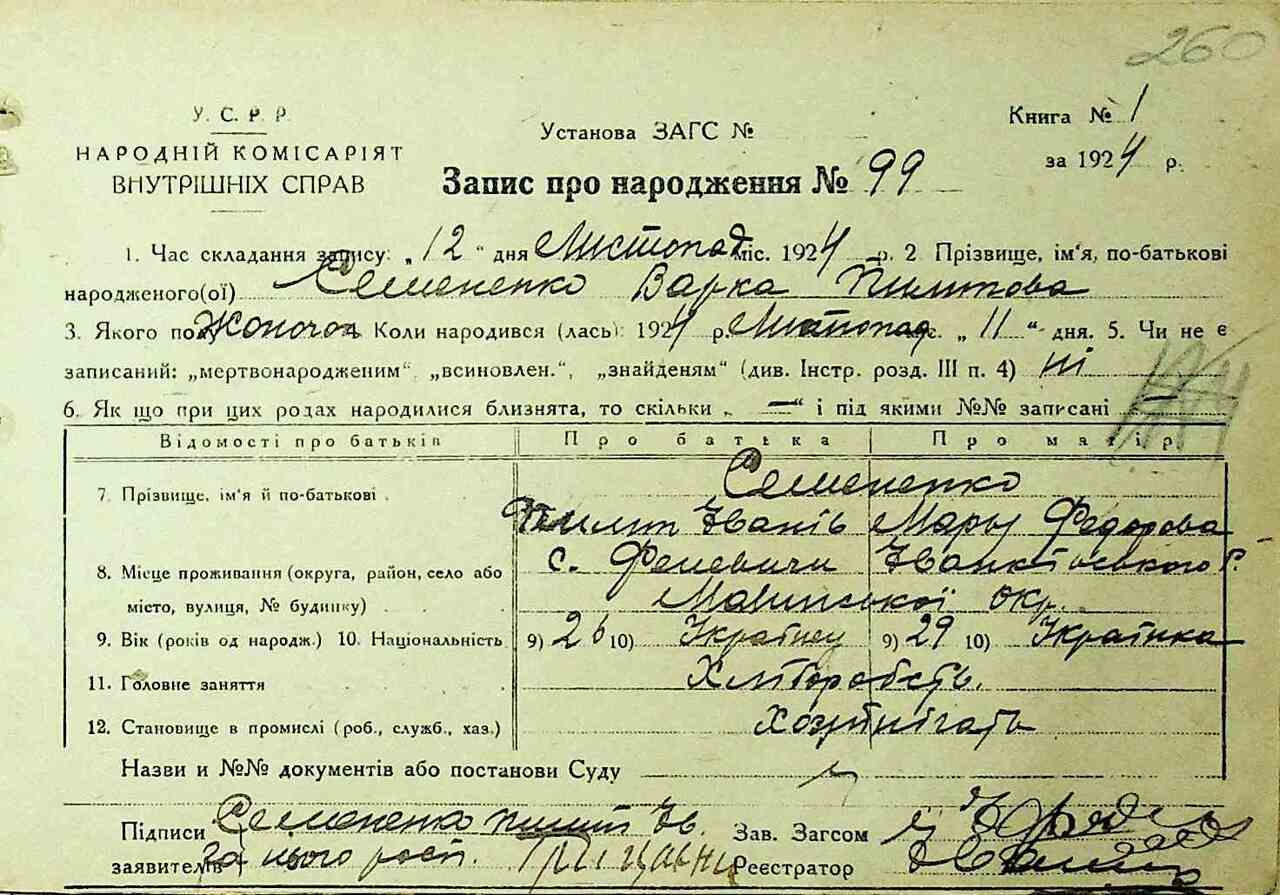 260
У. С. Р. Р.
НАРОДНІЙ КОМІСАРІЯТ
ВНУТРІШНІХ СПРАВ
Установа ЗАГС №
Книга № 1
за 1924 р.
Запис про народження № 99
1. Час складання запису: „12“ дня Листопад міс. 1924 р. 2 Прізвище, ім'я, по-батькові
народженого(ої) Семененко Варка Пилипова
3. Якого полу Жоночоі Коли народився (лась): 1924 р. Листопад „11“ дня. 5. Чи не є
записаний: „мертвонародженим“, „всиновлен.“, „знайденям“ (див. Інстр. розд. III п. 4) ні
6. Як що при цих родах народилися близнята, то скільки „—“ і під якими №№ записані —
Відомості про батьків Про батька Про матір
7. Прізвище, ім'я й по-батькові Семененко
Пилип Іванів Марья Федорова
8. Місце проживання (округа, район, село або с. Феневичи Іванківського р.
місто, вулиця, № будинку) Малинської окр.
9. Вік (років од народж.) 10. Національність 9) 26 10) Українец 9) 29 10) Українка
11. Головне заняття Хліборобств.
12. Становище в промислі (роб., служб., хаз.)
Назви и №№ документів або постанови Суду
Підписи Семененко Пилип Ів. Зав. Загсом
заявителів за нього росп. Реєстратор